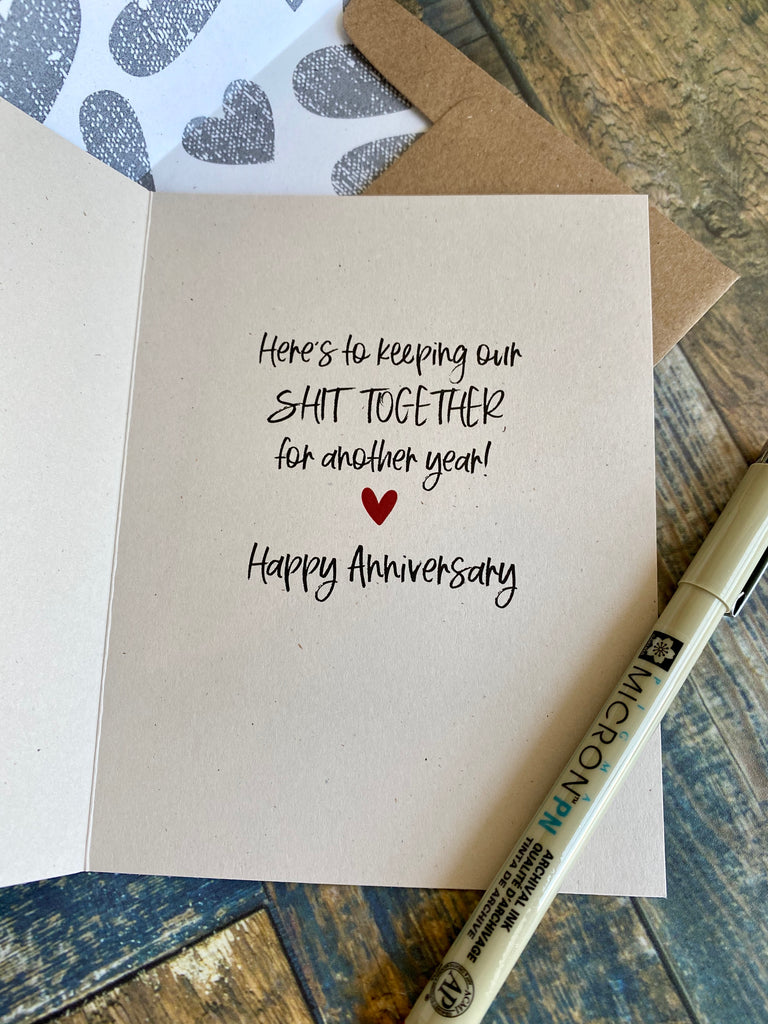 Here's to keeping our
SHIT TOGETHER
for another year!
Happy Anniversary
PIGMA
MICRON™ PN
ARCHIVAL INK
QUALITÉ D'ARCHIVAGE
TINTA DE ARCHIVE
ACMI
AP